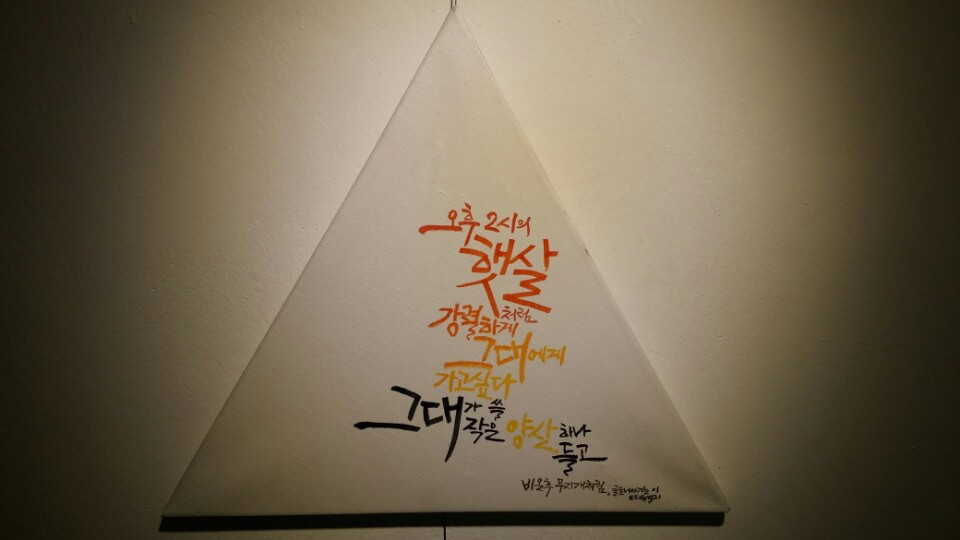 오후 2시의
햇살
처럼
강렬하게
그대에게
가고싶다
그대가 쓸
작은 양산 하나
들고
비온후 무지개처럼,